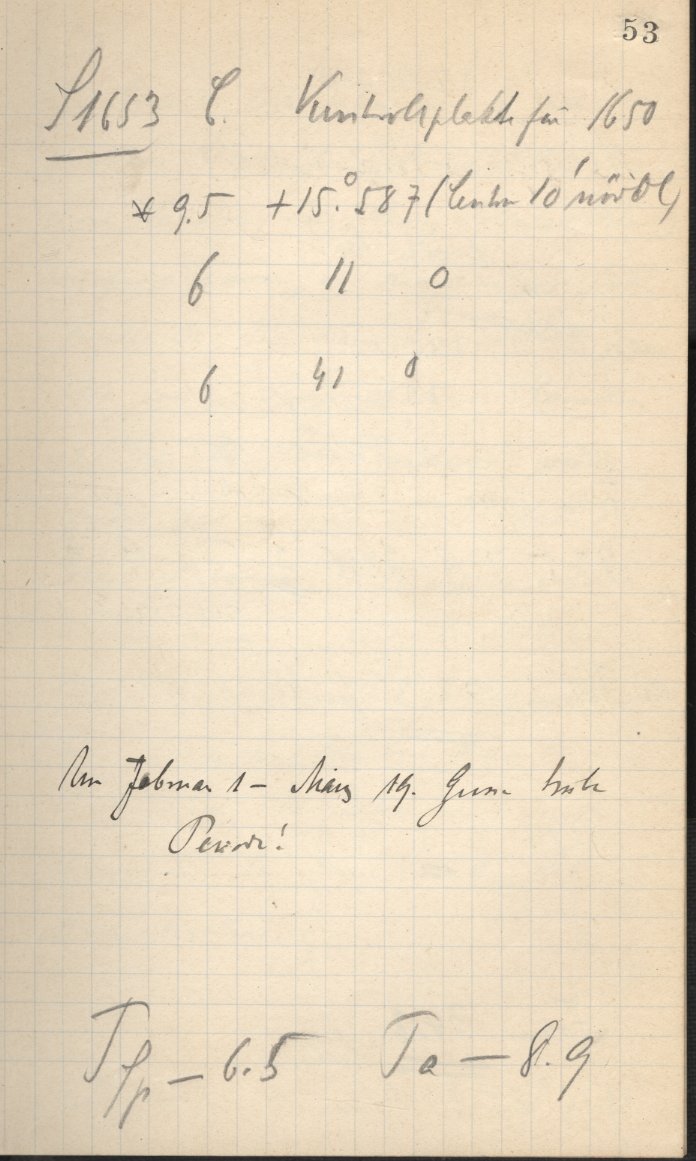 53
S1653 C. Kontrollplatte für 1650
* 9.5 +15.°587 (Centr. 10' nördl.)
6 11 0
6 41 0
Februar 1 – März 19. Ganze trübe
Periode!
T Sp – 6.5 Ta – 8.9